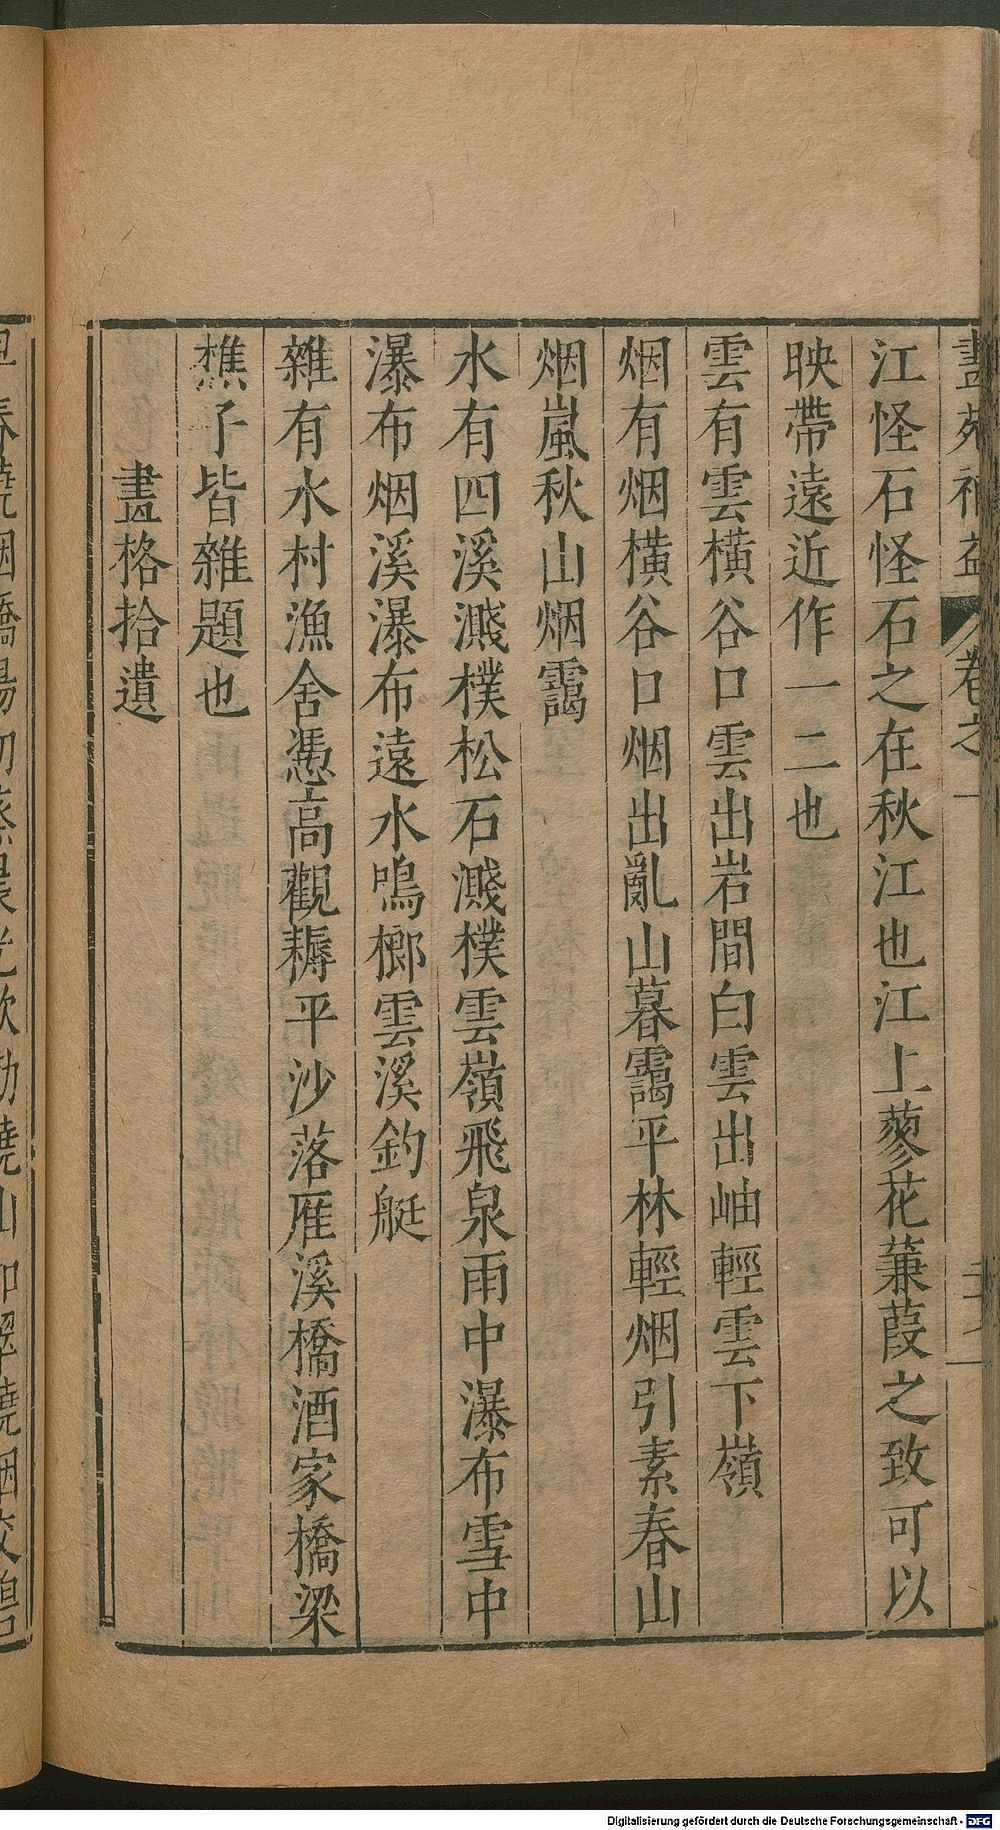 畫苑補益 卷之一
江怪石怪石之在秋江也江上蓼花蒹葭之致可以
映帶遠近作一二也
雲有雲橫谷口雲出岩間白雲出岫輕雲下嶺
烟有烟橫谷口烟出亂山暮靄平林輕烟引素春山
烟嵐秋山烟靄
水有四溪濺樸松石濺樸雲嶺飛泉雨中瀑布雪中
瀑布烟溪瀑布遠水鳴榔雲溪釣艇
雜有水村漁舍憑高觀耨平沙落雁溪橋酒家橋梁
樵子皆雜題也
畫格拾遺
Digitalisierung gefördert durch die Deutsche Forschungsgemeinschaft - DFG